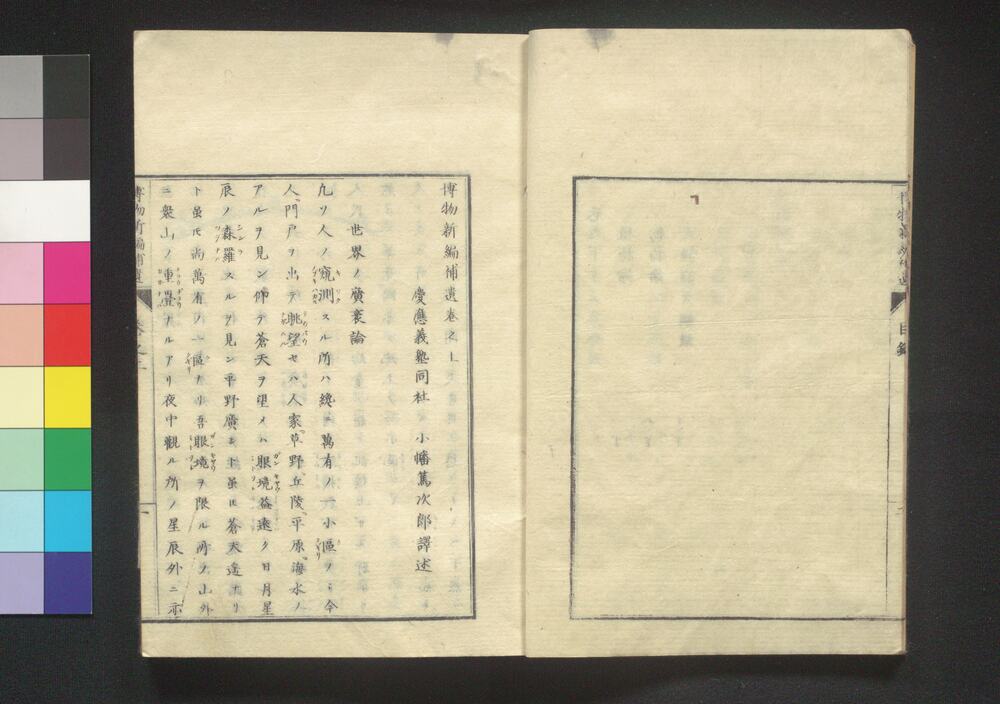 目録
博物新編補遺卷之上
慶應義塾同社 小幡篤次郎譯述
世界ノ廣袤論
凡ソ人ノ窺測スル所ハ纔ニ萬有ノ一小區ノミ今
人門戸ヲ出テ眺望セハ人家草野丘陵平原海水ノ
アルヲ見ン仰テ蒼天ヲ望メハ眼境益遠ク日月星
辰ノ森羅スルヲ見ン平野廣シト雖𪜈蒼天遙ナリ
ト雖𪜈尚萬有ノ一區ナリ吾眼境ヲ限ル所ノ山外
ニ衆山ノ重疊ナルアリ夜中觀ル所ノ星辰外ニ亦
博物新編補遺